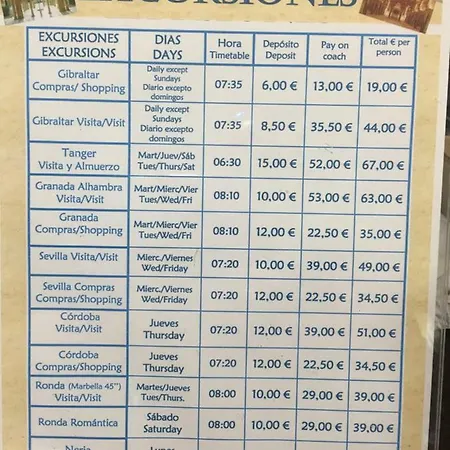 EXCURSIONES
EXCURSIONES EXCURSIONS DIAS DAYS Hora Timetable Depósito Deposit Pay on coach Total € per person
Gibraltar Compras/ Shopping Daily except Sundays Diario excepto domingos 07:35 6,00 € 13,00 € 19,00 €
Gibraltar Visita/Visit Daily except Sundays Diario excepto domingos 07:35 8,50 € 35,50 € 44,00 €
Tanger Visita y Almuerzo Mart/Juev/Sáb Tues/Thurs/Sat 06:30 15,00 € 52,00 € 67,00 €
Granada Alhambra Visita/Visit Mart/Mierc/Vier Tues/Wed/Fri 08:10 10,00 € 53,00 € 63,00 €
Granada Compras/Shopping Mart/Mierc/Vier Tues/Wed/Fri 08:10 12,00 € 22,50 € 35,00 €
Sevilla Visita/Visit Mierc./Viernes Wed/Friday 07:20 10,00 € 39,00 € 49,00 €
Sevilla Compras Compras/Shopping Mierc./Viernes Wed/Friday 07:20 12,00 € 22,50 € 34,50 €
Córdoba Visita/Visit Jueves Thursday 07:20 12,00 € 39,00 € 51,00 €
Córdoba Compras/Shopping Jueves Thursday 07:20 12,00 € 22,50 € 34,50 €
Ronda (Marbella 45") Visita/Visit Martes/Jueves Tues/Thurs. 08:00 10,00 € 29,00 € 39,00 €
Ronda Romántica Sábado Saturday 08:00 10,00 € 29,00 € 39,00 €
Nerja Lunes